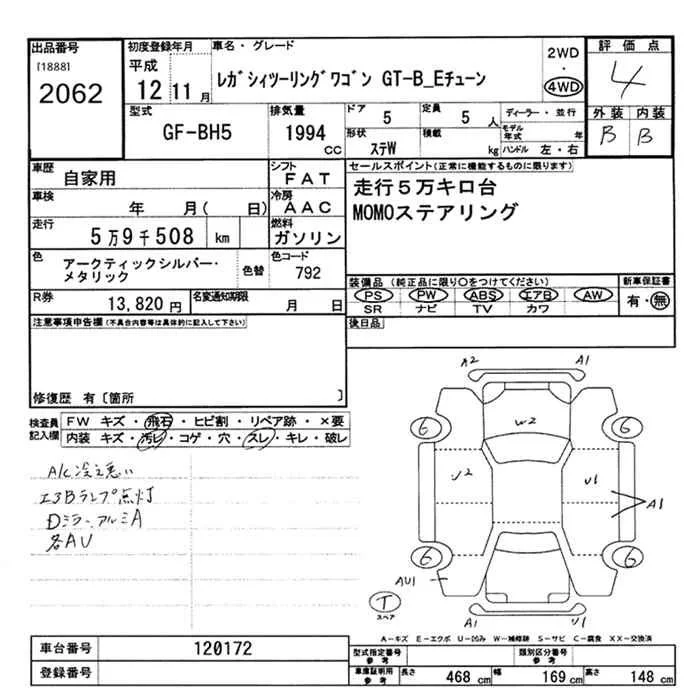 出品番号
[1888]
2062
初度登録年月
平成
12 11月
車名・グレード
レガシィツーリングワゴン GT-B_Eチューン
2WD
・
4WD
評価点
4
外装 内装
B B
型式
GF-BH5
排気量
1994
CC
ドア
5
定員
5 人
形状
ステW
積載
kg
ディーラー・並行
モデル年式 年
ハンドル 左・右
車歴
自家用
シフト
FAT
車検
年 月( 日)
冷房
AAC
走行
5万9千508 km
燃料
ガソリン
色
アークティックシルバー・メタリック
色替
色コード
792
R券
13,820 円
名変通知期限
月 日
セールスポイント(正常に機能するものに限ります)
走行5万キロ台
MOMOステアリング
装備品 (純正品に限り○をつけてください)
PS PW ABS エアB AW
SR ナビ TV カワ
新車保証書
有・無
後日品
注意事項申告欄(不具合内容等は具体的に記入して下さい)
修復歴 有〔箇所 〕
検査員記入欄
FW キズ・飛石・ヒビ割・リペア跡・×要
内装 キズ・汚レ・コゲ・穴・スレ・キレ・破レ
A/C冷え悪い
エアBランプ点灯
DミラーアルミA
各AU
A2 A1
W2
6 6
U2 U1
A1
6 6
AU1
T
スペア
A1 U1
A-キズ E-エクボ U-凹み W-補修跡 S-サビ C-腐食 XX-交換済
車台番号
120172
登録番号
型式指定番号
参考
類別区分番号
参考
車庫証明用
参考
長さ 468 cm
幅 169 cm
高さ 148 cm